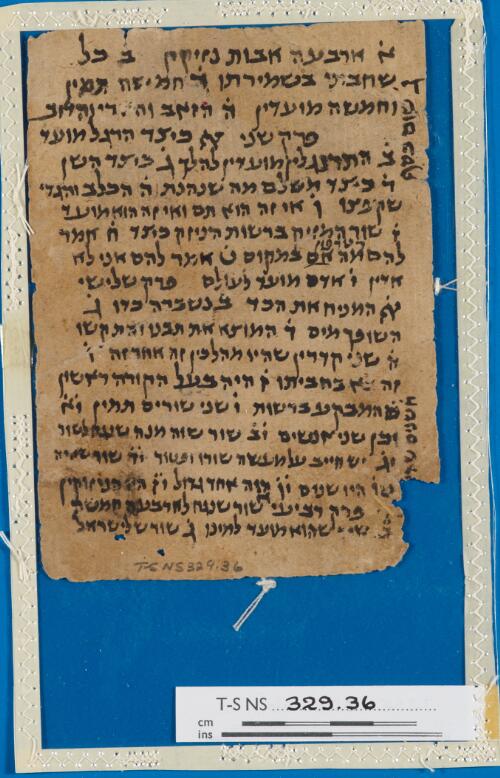 א ארבעה אבות נזיקין ב כל
שחבתי בשמירתו ד חמישה תמין
וחמשה מועדין ה הזאב והארי
פרק שני א כיצד הרגל מועד
ב התרנגלין מועדין להלך ג כיצד השן
ד כיצד משלם מה שנהנת ה הכלב והגדי
שקפצו ו אי זה הוא תם ואי זה הוא מועד
ז שור המזיק ברשות הניזק כיצד ח אמר
להם מה אם במקום ט אמר להם אני לא
אדין י אדם מועד לעולם פרק שלישי
א המניח את הכד ב נשברה כדו ג
השופך מים ד המוצא את תבנו והת קשו
ה שני קדרין שהיו מהלכין זה אחר זה ו
זה בא בחביתו ז היה בעל הקורה ראשון
המבקע ברשות ט שני שורים תמין י
וכן שני אנשים יב שור שהיה
יג יש חייב על מעשה שורו ופטור יד שור שהיה
היו שנים היה אחד גדול
פרק רביעי שור שנגח לחארבעה חמשה
שור שהוא מועד למינו ג שור שלישראל
שום כסף
T-S NS 329.36
T-S NS 329.36
cm
ins